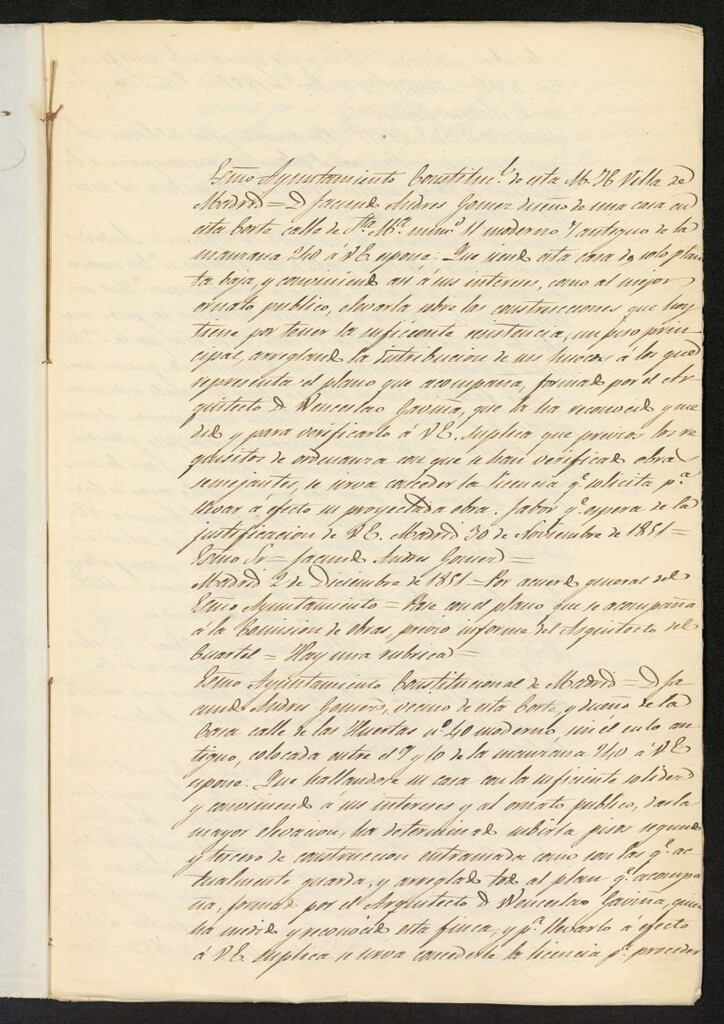 Exmo Ayuntamiento Constituc.l de esta M. H. Villa de
Madrid = D Jacinto Andres Gomez dueño de una casa en
esta Corte calle de Sta Ma. num.o 11 moderno 7 antiguo de la
manzana 240 á V.E. espone: Que siendo esta casa de solo plan
ta baja, y conviniendo asi á sus intereses, como al mejor
ornato publico, elevarla sobre las construcciones que hoy
tiene por tener la suficiente resistencia, un piso prin
cipal, arreglando la distribucion de sus huecos á los que
representa el plano que acompaña, formado por el Ar
quitecto D Wenceslao Gaviña, que la ha reconocido y me
dido y para verificarlo á V.E. suplica que previos los re
quisitos de ordenanza con que se han verificado obras
semejantes, se sirva conceder la licencia q.e solicita p.a
llevar á efecto su proyectada obra. fabor q.e espera de la
justificacion de V.E. Madrid 30 de Noviembre de 1851 =
Exmo Sr = Jacinto Andres Gomez =
Madrid 2 de Diciembre de 1851 = Por acuerdo general del
Exmo Ayuntamiento = Pase con el plano que se acompaña
á la Comision de obras, previo informe del Arquitecto del
Cuartel = Hay una rubrica =
Exmo Ayuntamiento Constitucional de Madrid = D Ja
cinto Andres Gomez, vecino de esta Corte, y dueño de la
Casa calle de las Huertas n.o 40 moderno, sin él en lo an
tiguo, colocada entre el 9 y 10 de la manzana 240 á V.E.
espone: Que hallandose su casa con la suficiente solidez
y conviniendo á sus intereses y al ornato publico, darla
mayor elevacion, ha determinado subirla pisos segundo
y tercero de construccion entramada como son las q.e ac
tualmente guarda, y arreglado todo al plan q.e acompa
ña, formado por el Arquitecto D Wenceslao Gaviña, quien
ha medido y reconocido esta finca, y p.a llevarlo á efecto
á V.E. suplica se sirva concederle la licencia p.a proceder